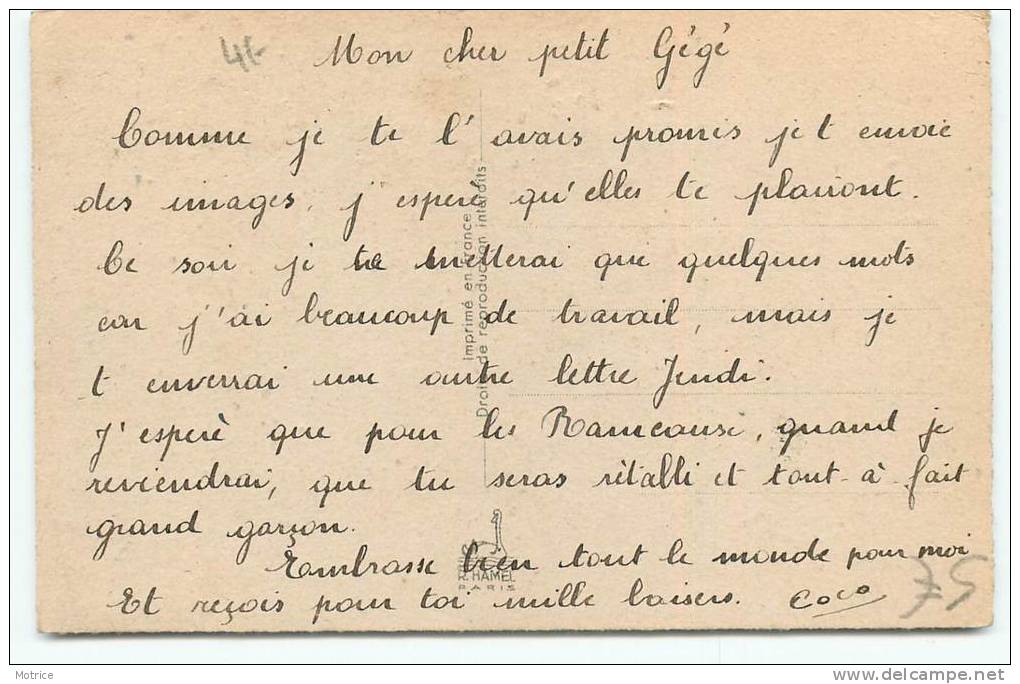 4f-
Mon cher petit Gégé
Comme je te l'avais promis je t envoie
des images, j'esperè qu'elles te plairont.
Ce soir je ne metterai que quelques mots
car j'ai beaucoup de travail, mais je
t enverrai une autre lettre Jeudi.
J'esperè que pour les Rameause, quand je
reviendrai, que tu seras rétabli et tout-à fait
grand garçon.
Embrasse bien tout le monde pour moi
Et reçois pour toi mille baisers. Coco
75
Imprimé en France
Droits de reproduction interdits
R.HAMEL
PARIS
Motrice
www.delcampe.net